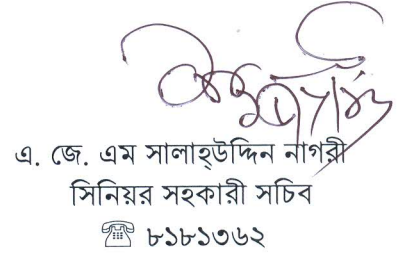 এ. জে. এম সালাহ্উদ্দিন নাগরী
সিনিয়র সহকারী সচিব
☎ ৮১৮১৩৬২